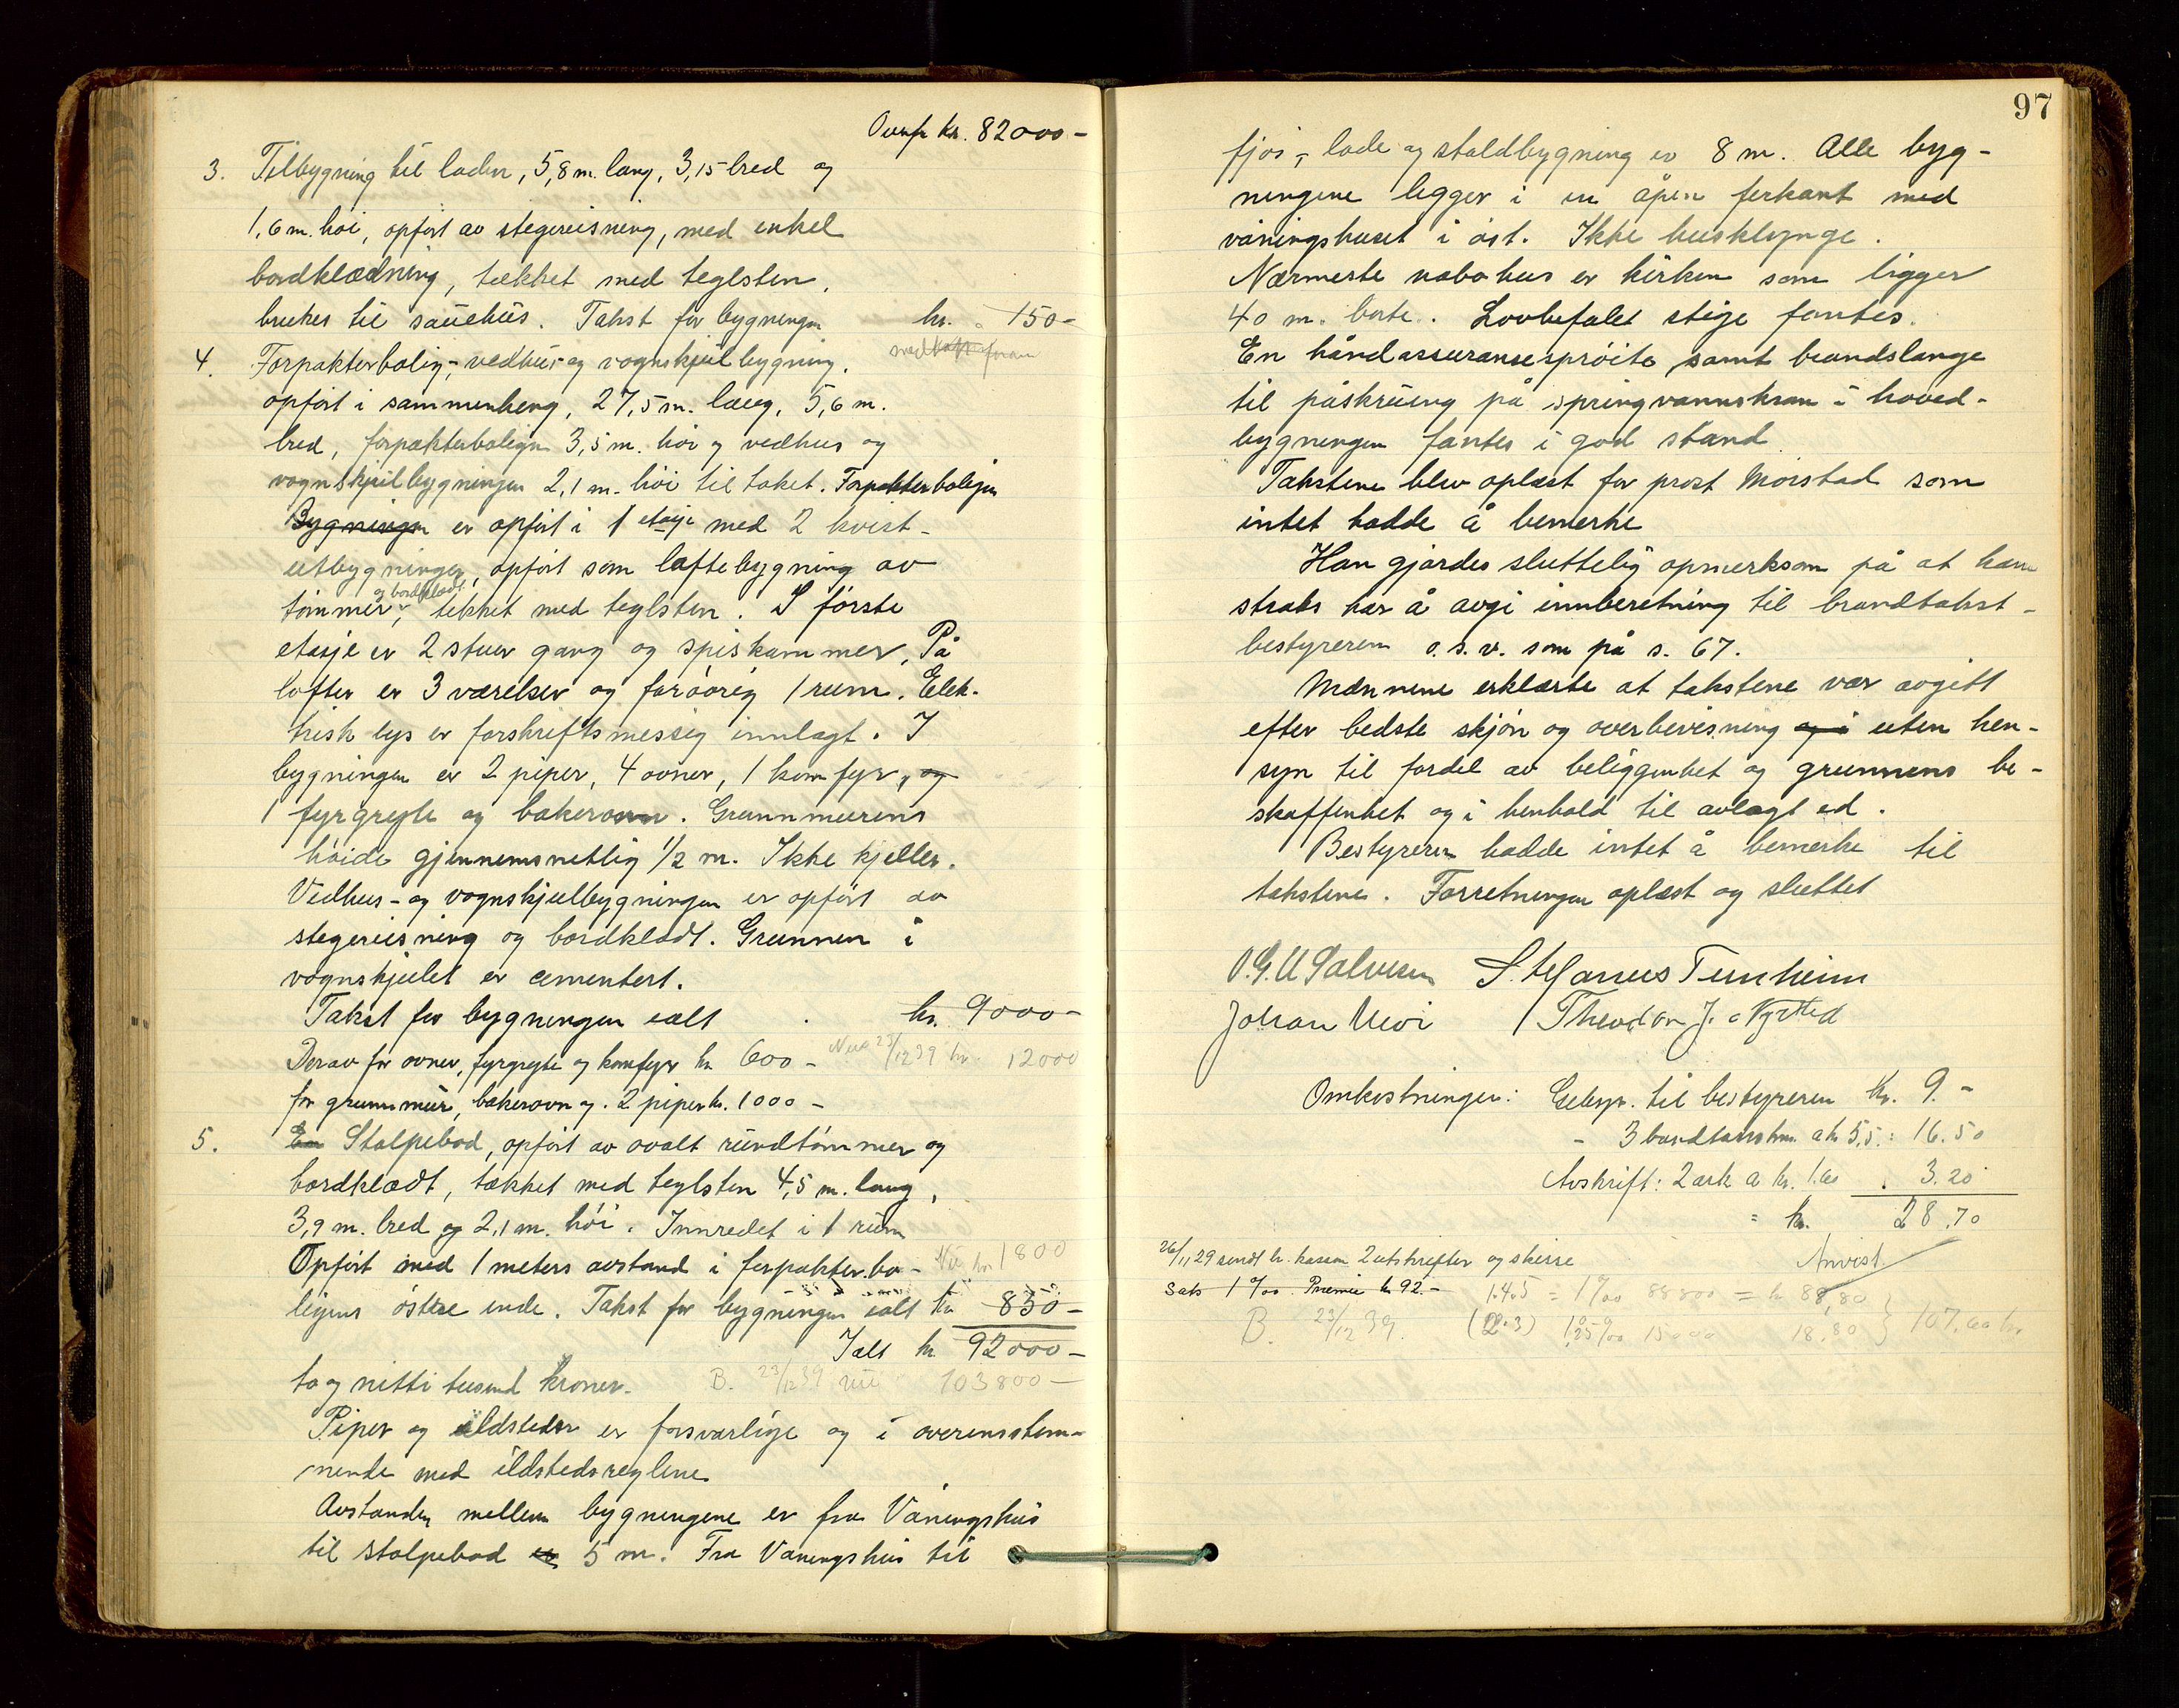 Overf. kr. 82000-
3. Tilbygning til laden, 5,8 m. lang, 3,15 bred og
1,6 m. høi, opført av stegereisning, med enkel
bordklædning, tækket med teglsten,
brukes til sauehus. Takst for bygningen kr. 150-
4. Forpakterbolig-, vedhus- og vognskjulbygning.
opført i sammenheng, 27,5 m. lang, 5,6 m.
bred, forpakterboligen 3,5 m. høi og vedhus og
vognskjulbygningen 2,1 m. høi til taket. Forpakterboligen
Bygningen er opført i 1 etasje med 2 kvist-
utbygninger, opført som laftebygning av
tømmer og bordklædt, tekket med teglsten. I første
etasje er 2 stuer gang og spiskammer. På
loftet er 3 værelser og forøvrig 1 rum. Elek-
trisk lys er forskriftsmessig innlagt. I
bygningen er 2 piper, 4 ovner, 1 komfyr, og
1 fyrgryte og bakerovn. Grunnmurens
høide gjennemsnitlig 1/2 m. Ikke kjeller.
Vedhus- og vognskjulbygningen er opført av
stegereisning og bordklædt. Grunnen i
vognskjulet er cementert.
Takst for bygningen ialt kr. 9000-
Derav for ovner, fyrgryte og komfyr kr 600- 23/12 39 kr. 12000
for grunnmur, bakerovn og 2 piper kr. 1000-
5. En Stolpebod, opført av ovalt rundtømmer og
bordklædt, tækket med teglsten 4,5 m. lang,
3,9 m. bred og 2,1 m. høi. Innredet i 1 rum
Opført med 1 meters avstand i forpakterbo- Nu kr. 1800
ligens østre ende. Takst for bygningen ialt kr 850-
Ialt kr 92000-
to og nitti tusend kroner. B. 23/12 39 nu 103800-
Piper og ildsteder er forsvarlige og i overensstem-
mende med ildstedsreglene
Avstanden mellem bygningene er fra Våningshus
til stolpebod er 5 m. Fra Våningshus til
97
fjøs-, lade og staldbygning er 8 m. Alle byg-
ningene ligger i en åpen ferkant med
våningshuset i øst. Ikke husklynge.
Nærmeste nabohus er kirken som ligger
40 m. borte. Lovbefalet stige fantes.
En håndassuransesprøite samt brandslange
til påskruing på springvannskran i hoved-
bygningen fantes i god stand
Takstene blev oplæst for prost Mörstad som
intet hadde å bemerke
Han gjordes sluttelig opmerksom på at han
straks har å avgi innberetning til brandtakst-
bestyreren o.s.v. som på s. 67.
Mænnene erklærte at takstene var avgitt
efter bedste skjøn og overbevisning og i uten hen-
syn til fordel av beliggenhet og grunnens be-
skaffenhet og i henhold til avlagt ed.
Bestyreren hadde intet å bemerke til
takstene. Forretningen oplæst og sluttet
O.G.U Salvesen
Johan Theodor J.
Omkostninger: Gebyr. til bestyreren Kr. 9.-
- 3 a kr 5,5.: 16.50
Avskrift: 2 ark a kr. 1.60 . 3.20
= kr. 28.70
26/11 29 sendt br. kassen 2 utskrifter og skisse Anvist
Sats 1 ‰. Præmie kr 92.- 1.4.5 = 1‰ 88800 = kr 88,80
B. 23/12 39. 18.80 } 107.60 kr